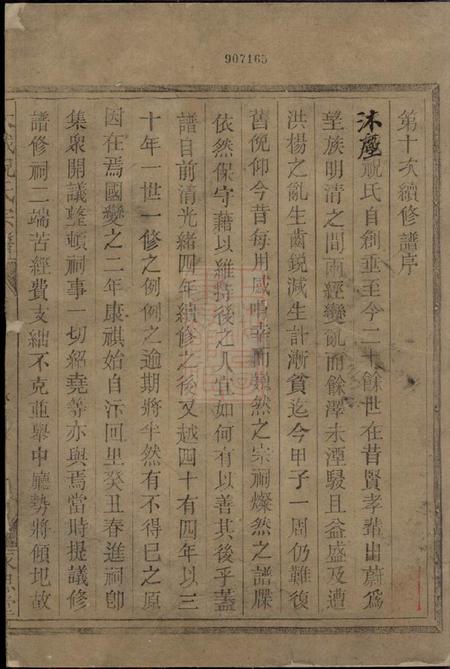 907165
第十次續修譜序
沐塵祝氏自創垂至今二十餘世在昔賢孝輩出蔚爲
望族明清之間雨經變亂而餘澤未湮駸且益盛及遭
洪楊之亂生齒銳減生計漸貧迄今甲子一周仍難復
舊俛仰今昔每用感喟幸而巍然之宗祠燦然之譜牒
依然保守藉以維持後之人宜如何有以善其後乎蓋
譜自前清光緒四年續修之後又越四十有四年以三
十年一世一修之例例之逾期將半然有不得已之原
因在焉國變之二年康祺始自汴回里癸丑春進祠卽
集衆開議整頓祠事一切紹堯等亦與焉當時提議修
譜修祠二端苦經費支絀不克並舉中廳勢將傾圯故
氏宗譜